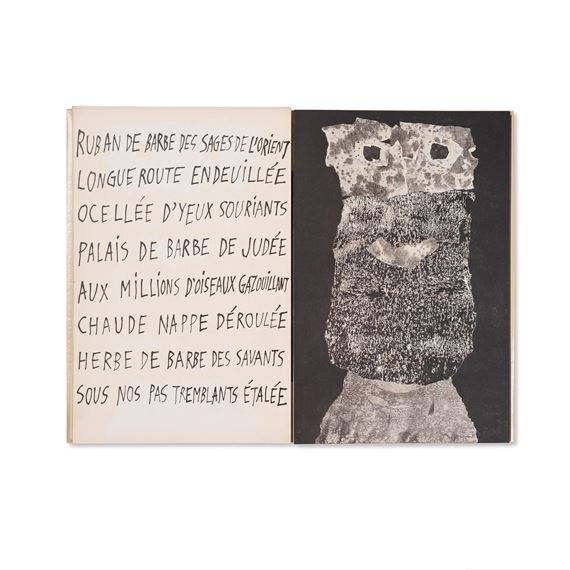 RUBAN DE BARBE DES SAGES DE L'ORIENT
LONGUE ROUTE ENDEUILLÉE
OCELLÉE D'YEUX SOURIANTS
PALAIS DE BARBE DE JUDÉE
AUX MILLIONS D'OISEAUX GAZOUILLANT
CHAUDE NAPPE DÉROULÉE
HERBE DE BARBE DES SAVANTS
SOUS NOS PAS TREMBLANTS ÉTALÉE